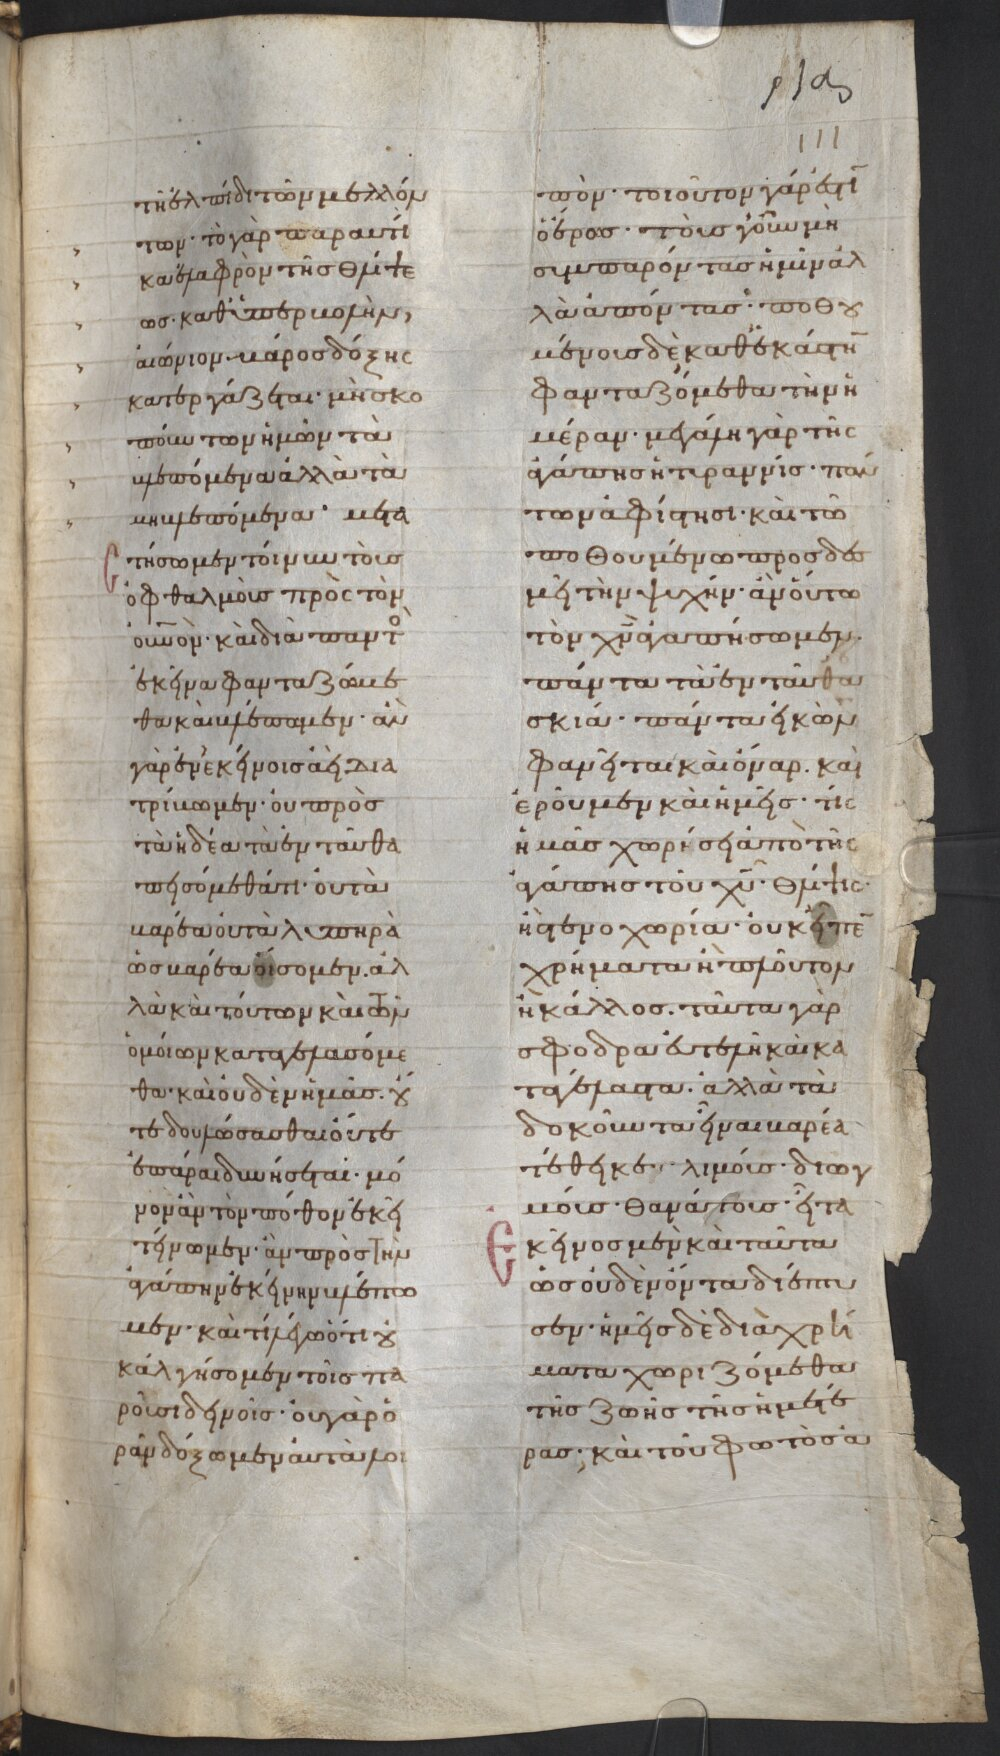 ριας
111
τῆ ἐλπίδι τῶν μελλόν
των· τὸ γὰρ παραυτί
κα ἐλαφρὸν τῆς θλίψε
ως· καθ' ὑπερβολὴν,
αἰώνιον βάρος δόξης
κατεργάζεται· μὴ σκο
πούντων ἡμῶν τὰ
βλεπόμενα ἀλλὰ τὰ
μὴ βλεπόμενα· μετα
στήσωμεν τοίνυν τοὺς
ὀφθαλμοὺς πρὸς τὸν
οὐνὸν· καὶ διὰ παντὸ
ἐκεῖνα φανταζώμε
θα καὶ βλέπωμεν· ἂν
γὰρ ἐν ἐκείνοις ἀεὶ δια
τρίβωμεν· οὐ πρὸς
τὰ ἡδέα τὰ ἐνταῦθα
πεισόμεθά τι· οὐ τὰ
βαρέα οὐ τὰ λυπηρὰ
ὡς βαρέα οἴσομεν· ἀλ
λὰ καὶ τούτων καὶ τῶν
ὁμοίων καταγελασόμε
θα· καὶ οὐδὲν ἡμᾶς· οὔ
τε δουλώσασθαι οὔτε
ἐπᾶραι δυνήσεται· μό
νον ἂν τὸν πόθον ἐκεῖ
τείνωμεν· ἂν πρὸς τὴν
ἀγάπην ἐκείνην βλέπω
μεν· καὶ τί λέγω ὅτι οὐ
κ ἀλγήσομεν τοῖς πα
ροῦσι δεινοῖς· οὐ γὰρ ὁ
ρᾶν δόξωμεν αὐτὰ λοι
πὸν· τοιοῦτον γάρ ἐστι
ὁ ἔρως· τοὺς γοῦν μὴ
συμπαρόντας ἡμῖν ἀλ
λὰ ἀπόντας· ποθου
μένους δὲ καθ' ἑκάστην
φανταζόμεθα τὴν ἡ
μέραν· μεγάλη γὰρ τῆς
ἀγάπης ἡ τυραννίς· πάν
των ἀφίστησι· καὶ τῶ
ποθουμένω προσδεσ
μεῖ τὴν ψυχήν· ἂν οὕτω
τὸν χν ἀγαπήσωμεν·
πάντα τὰ ἐνταῦθα
σκιά· πάντα εἰκὼν
φανεῖται καὶ ὄναρ· καὶ
ἐροῦμεν καὶ ἡμεῖς· τίς
ἡμᾶς χωρίσει ἀπὸ τῆς
ἀγάπης τοῦ χυ· θλίψις·
ἢ στενοχωρία· οὐκ εἶπε
χρήματα ἢ πλοῦτον
ἢ κάλλος· ταῦτα γὰρ
σφόδρα εὐτελῆ καὶ κα
ταγέλαστα· ἀλλὰ τὰ
δοκοῦντα εἶναι βαρέα
τέθεικε· λιμούς· διωγ
μούς· θανάτους· εἶτα
Ἐκεῖνος μὲν καὶ ταῦτα
ὡς οὐδὲν ὄντα διέπτυ
σεν· ἡμεῖς δὲ διὰ χρή
ματα χωριζόμεθα
τῆς ζωῆς τῆς ἡμετέ
ρας· καὶ τοῦ φωτὸς ἀ